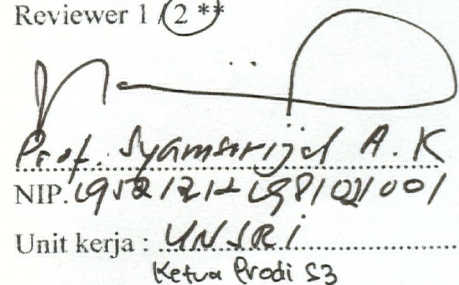 Reviewer 1 / 2 **
Prof. Syamsurijal A. K
NIP. 19521212 198102 1 001
Unit kerja : UNSRI
Ketua Prodi S3